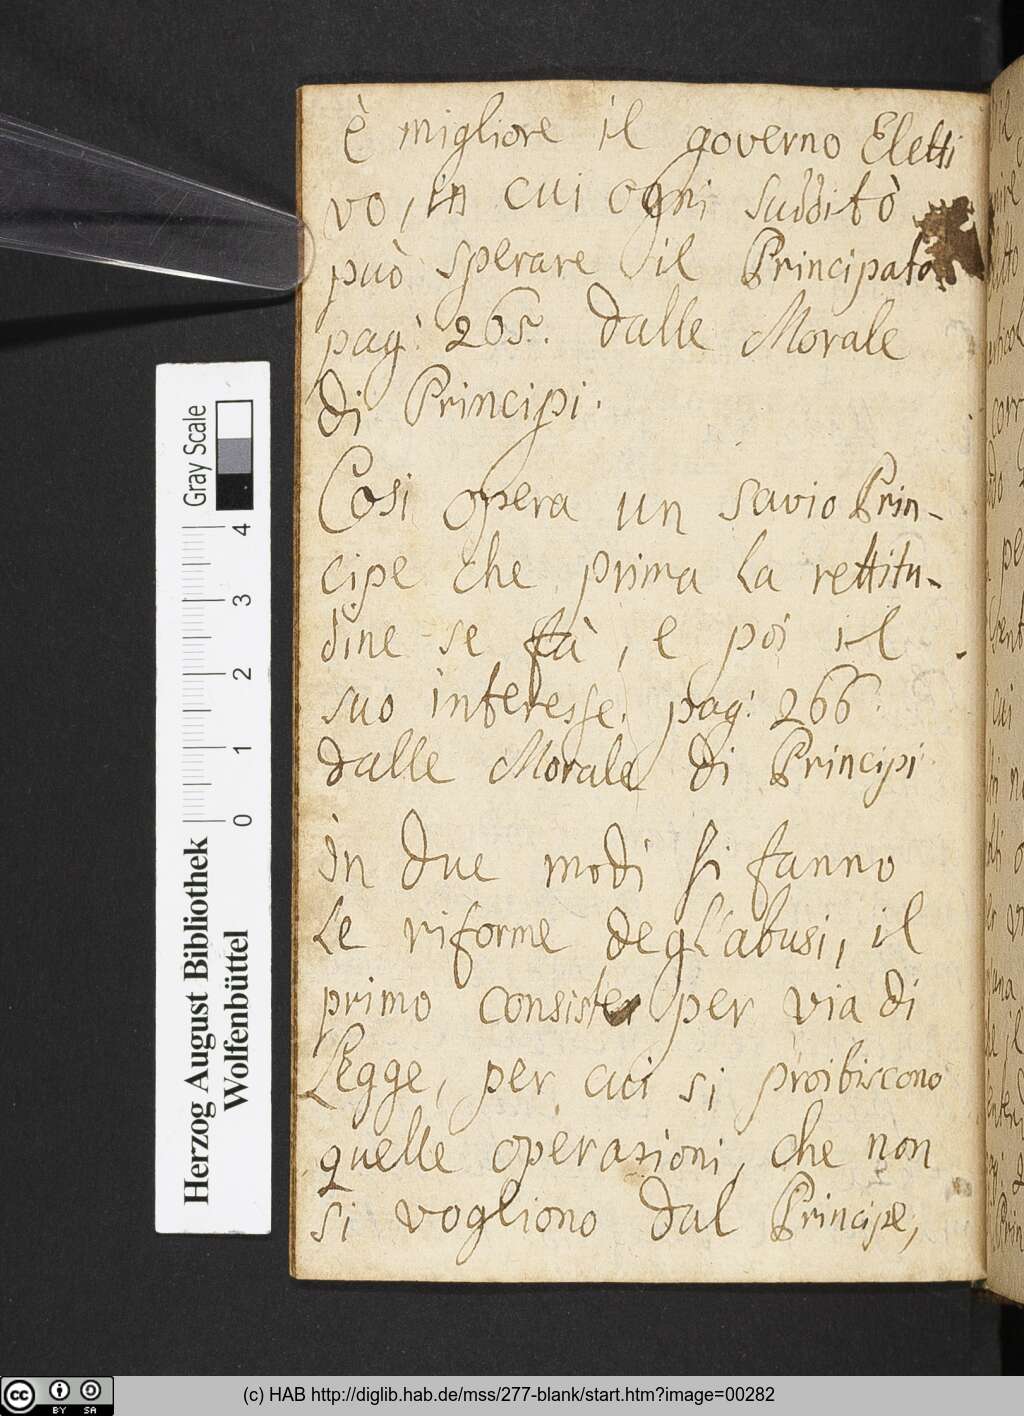 è migliore il governo Eletti
vo, in cui ogni sudditò
può sperare il Principato
pag: 265. dalle Morale
di Principi.
Cosi opera un savio Prin-
cipe che prima la rettitu-
dine se fà, e poi il
suo interesse. pag: 266.
dalle Morale di Principi
in due modi si fanno
le riforme degl'abusi, il
primo consiste per via di
Legge, per cui si proibiscono
quelle operasioni, che non
si vogliono dal Principe,
Gray Scale
0 1 2 3 4
Herzog August Bibliothek
Wolfenbüttel
cc BY SA
(c) HAB http://diglib.hab.de/mss/277-blank/start.htm?image=00282